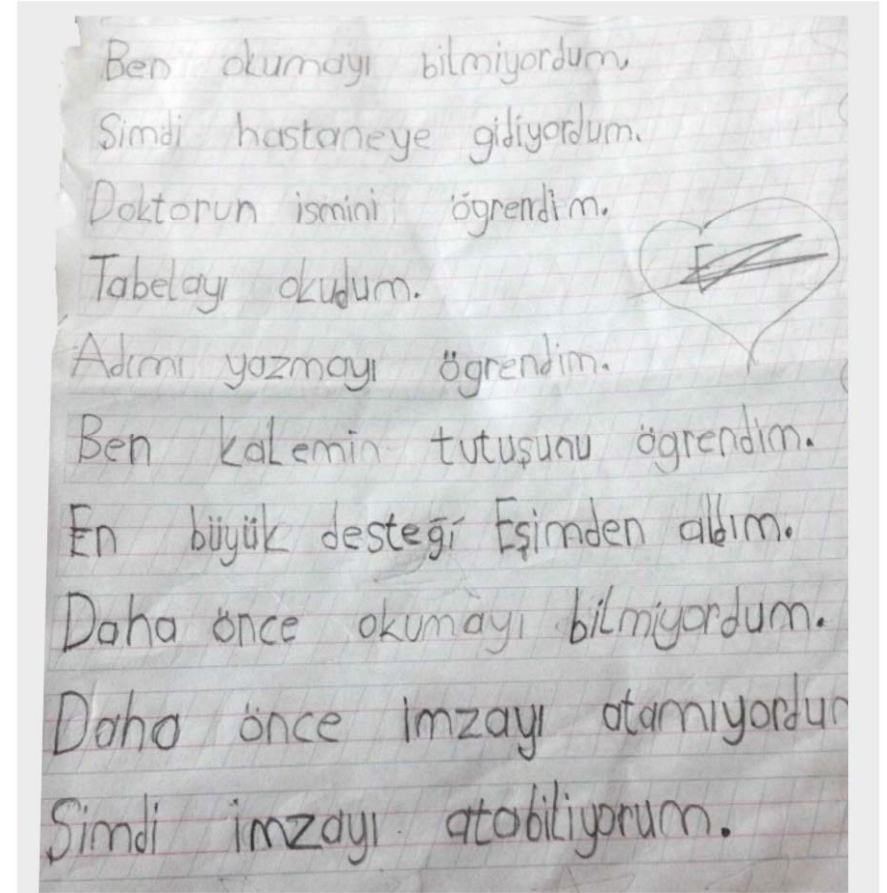 Ben okumayı bilmiyordum.
Simdi hastaneye gidiyordum.
Doktorun ismini ögrendim.
Tabelayı okudum.
Adımı yazmayı ögrendim.
Ben kalemin tutuşunu ögrendim.
En büyük desteği Eşimden aldım.
Daha önce okumayı bilmiyordum.
Daha önce imzayı atamıyordum
Simdi imzayı atabiliyorum.